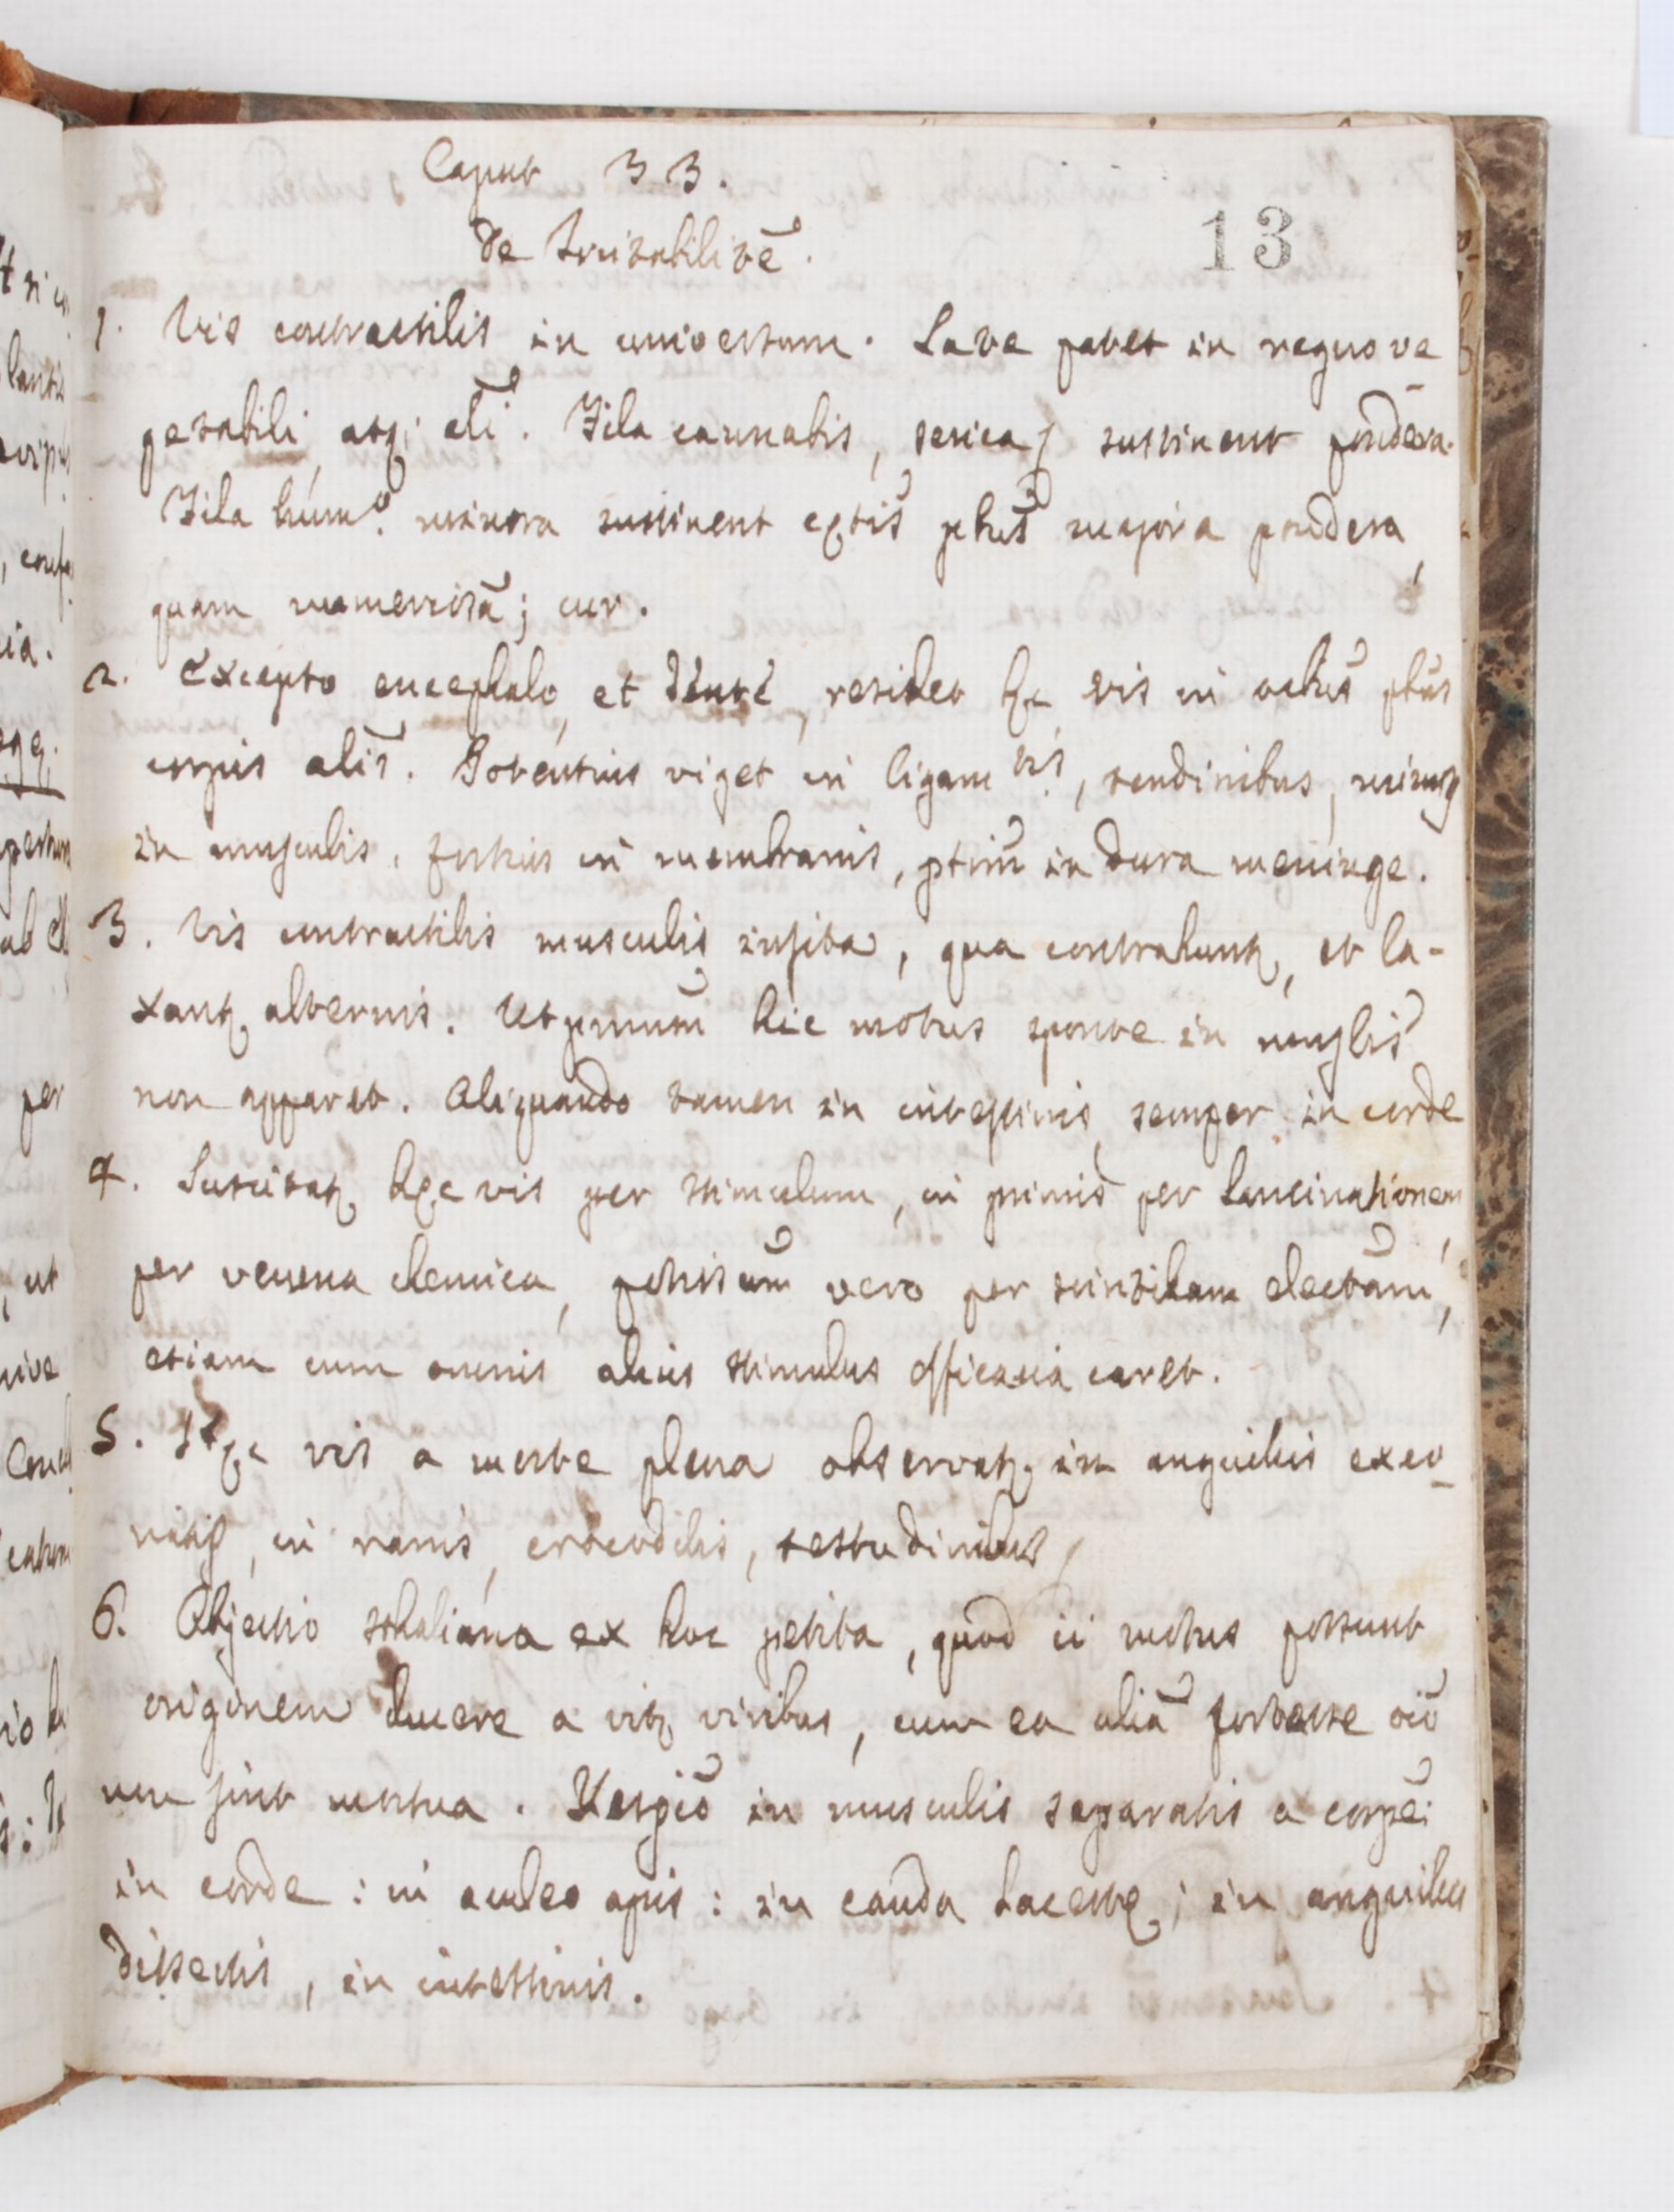 Caput 33.
13
De Irritabilitẽ.
1. Vis contractilis in universum. Late patet in regno ve
getabili, atq; ali. Fila cannabis, serica sustinent pondera.
Fila hum? minora sustinent extis majora pondera,
quam; cur.
2. Excepto encephalo, et dente, residet hæc vis in
corpis aliis. Potentius viget in ligam tis, tendinibus, minusq
in musculis, fortius in membranis, ptim in dura meninge.
3. Vis contractilis musculis insita, qua contrahunt, et la-
xant alternis. Ut primum hic motus sponte in musclis
non apparet. Aliquando tamen in intestinis, semper in corde
4. Suscitat hæc vis per stimulum, in primis per lancinationem
per venena chemica, potissum vero per scintillam elect,
etiam cum omnis alius stimulus efficacia caret.
5. Hæc vis a morte plena observat in anguillis exen
in ranis, crocodilis, testudinibus
6. Objectio sthaliana ex hoc petita, quod ii motus possunt
originem ducere a vitæ viribus, cum ea alia fortasse
non sint mortua. Respō in musculis separatis a corpe:
in corde: in aculeo apis: in cauda lacertæ; in anguibus
dissectis, in intestinis.